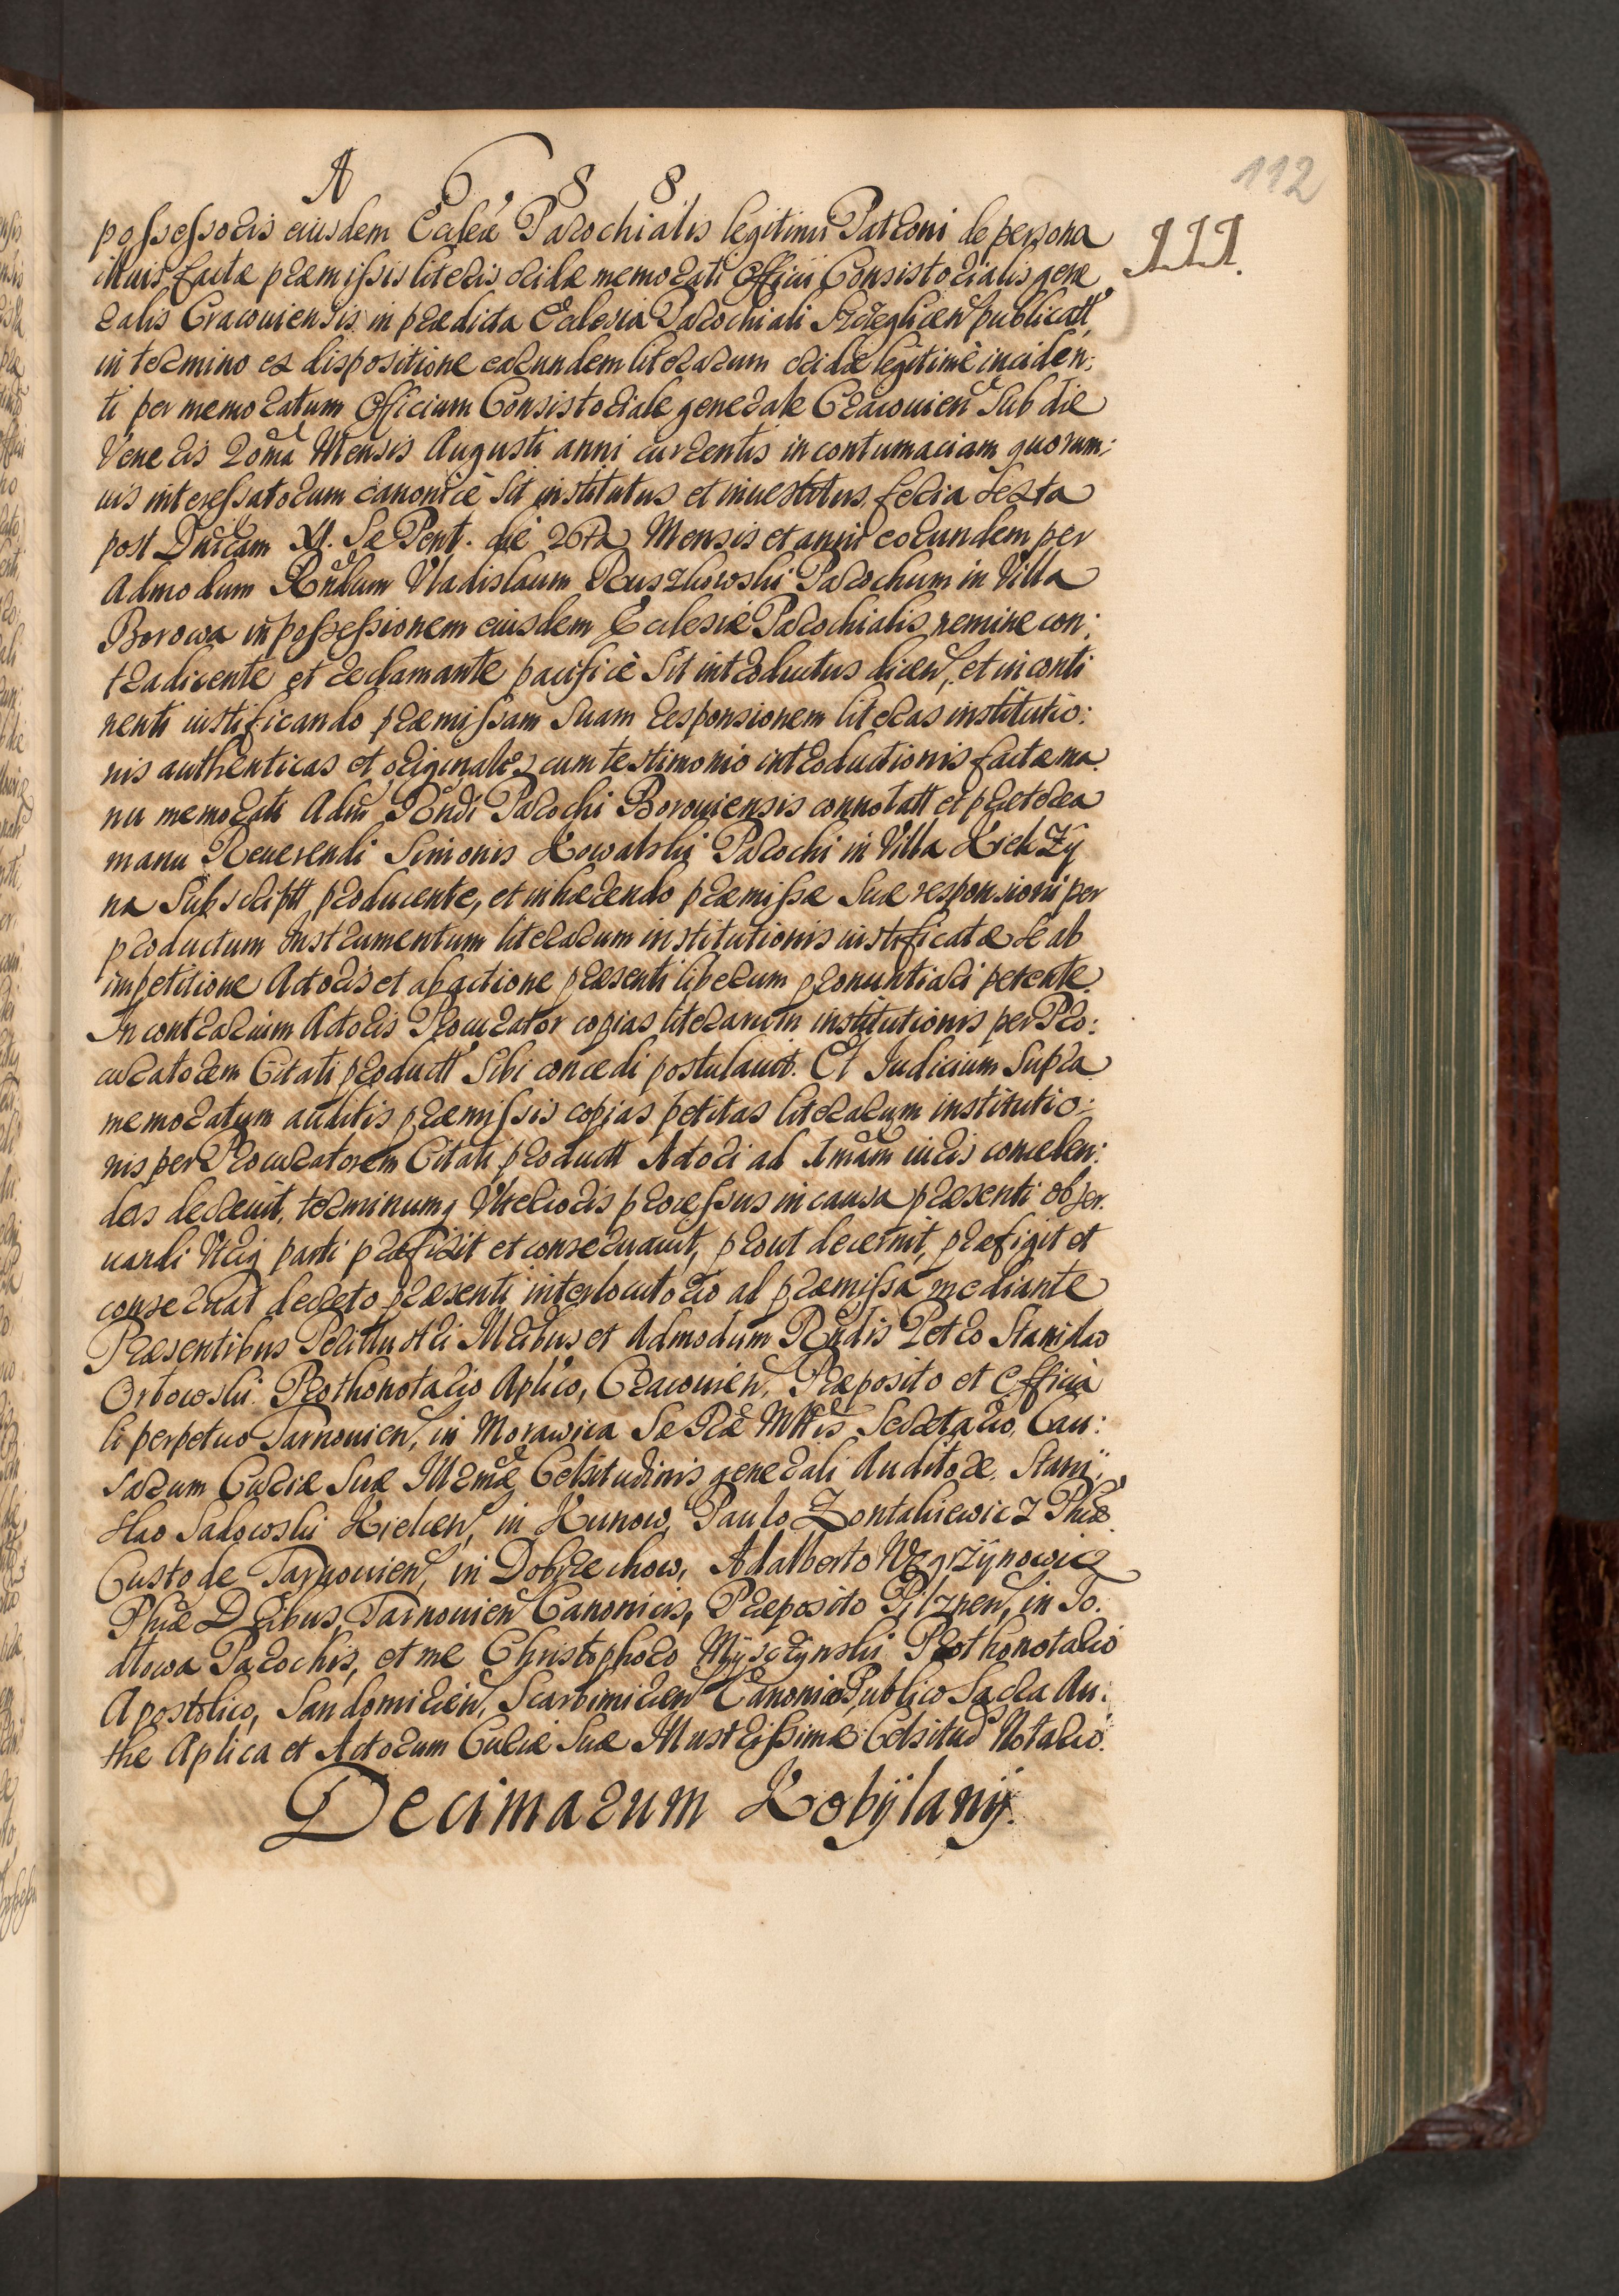 A 6. 8 8
112
III.
possessoris eiusdem Eccleæ Parochialis legitimi Patroni de persona
illius factæ præmissis literis cridæ memorati Officii Consistorialis gene
ralis Cracouiensis in prædicta Ecclesia Parochiali publicatt,
in termino ex dispositione earundem literarum cridæ legitimè inciden:
ti per memoratum Officium Consistoriale generale Cracouien Sub die
Veneris 20ma Mensis Augusti anni currentis in contumaciam quorum:
uis interessatorum canonicè sit institutus et inuestitus, feria sexta
post Dnicam XI. Sæ Pent. die 26ta Mensis et anni eorundem per
Admodum Rndum Vladislaum Ruszkowski Parochum in Villa
Borowa in possessionem eiusdem Ecclesiæ Parochialis nemine con:
tradicente et reclamante pacificè sit introductus dicen, et in conti
nenti iustificando præmissam Suam responsionem literas institutio:
nis authenticas et originales cum testimonio introductionis factæ ma
nu memorati Adm Rndi Parochi Borouiensis connotatt et præterea
manu Reuerendi Simonis Kowalski Parochi in Villa
na Subscriptt producente, et inhærendo præmissæ Suæ responsioni per
productum Instrumentum literarum institutionis iustificatæ Se ab
impetitione Actoris et ab actione præsenti liberum pronuntiari petente.
In contrarium Actoris Procurator copias literarum institutionis per Pro:
curatorem Citati productt Sibi concedi postulauit. Et Iudicium Supra
memoratum auditis præmissis copias petitas literarum institutio:
nis per Procuratorem Citati productt Actori ad iuris conceden:
das decreuit, terminumq Vlterioris processus in causa præsenti obser
uandi Vtriq parti præfixit et conseruauit, prout decernit, præfigit et
conseruat decreto præsenti interlocutorio ad præmissa mediante
Præsentibus Perillustri Illribus et Admodum Rndis Petro Stanislao
Orłowski Prothonotario Aplico, Cracouien, Præposito et Officia
li perpetuo Tarnouien, in Morawica Sæ Ræ Mttis Secretario, Cau:
sarum Curiæ Suæ Illrmæ Celsitudinis generali Auditore, Stani:
slao Sadowski Kielcen, in Kunow, Paulo Zontakiewicz Phiæ
Custode Tarnouien, in Dobrzechow, Adalberto Węgrzÿnowicz
Phiæ Dribus, Tarnouien Canonicis, Præposito Pilznen, in Jo:
dłowa Parochis, et me Christophoro Mÿsczÿnski Prothonotario
Apostolico, Sandomirien, Scarbimirien Canonico, Publico Sacra Au:
the Aplica et Actorum Curiæ Suæ Illustrissimæ Celsitud Notario.
Decimarum Kobÿlanÿ.